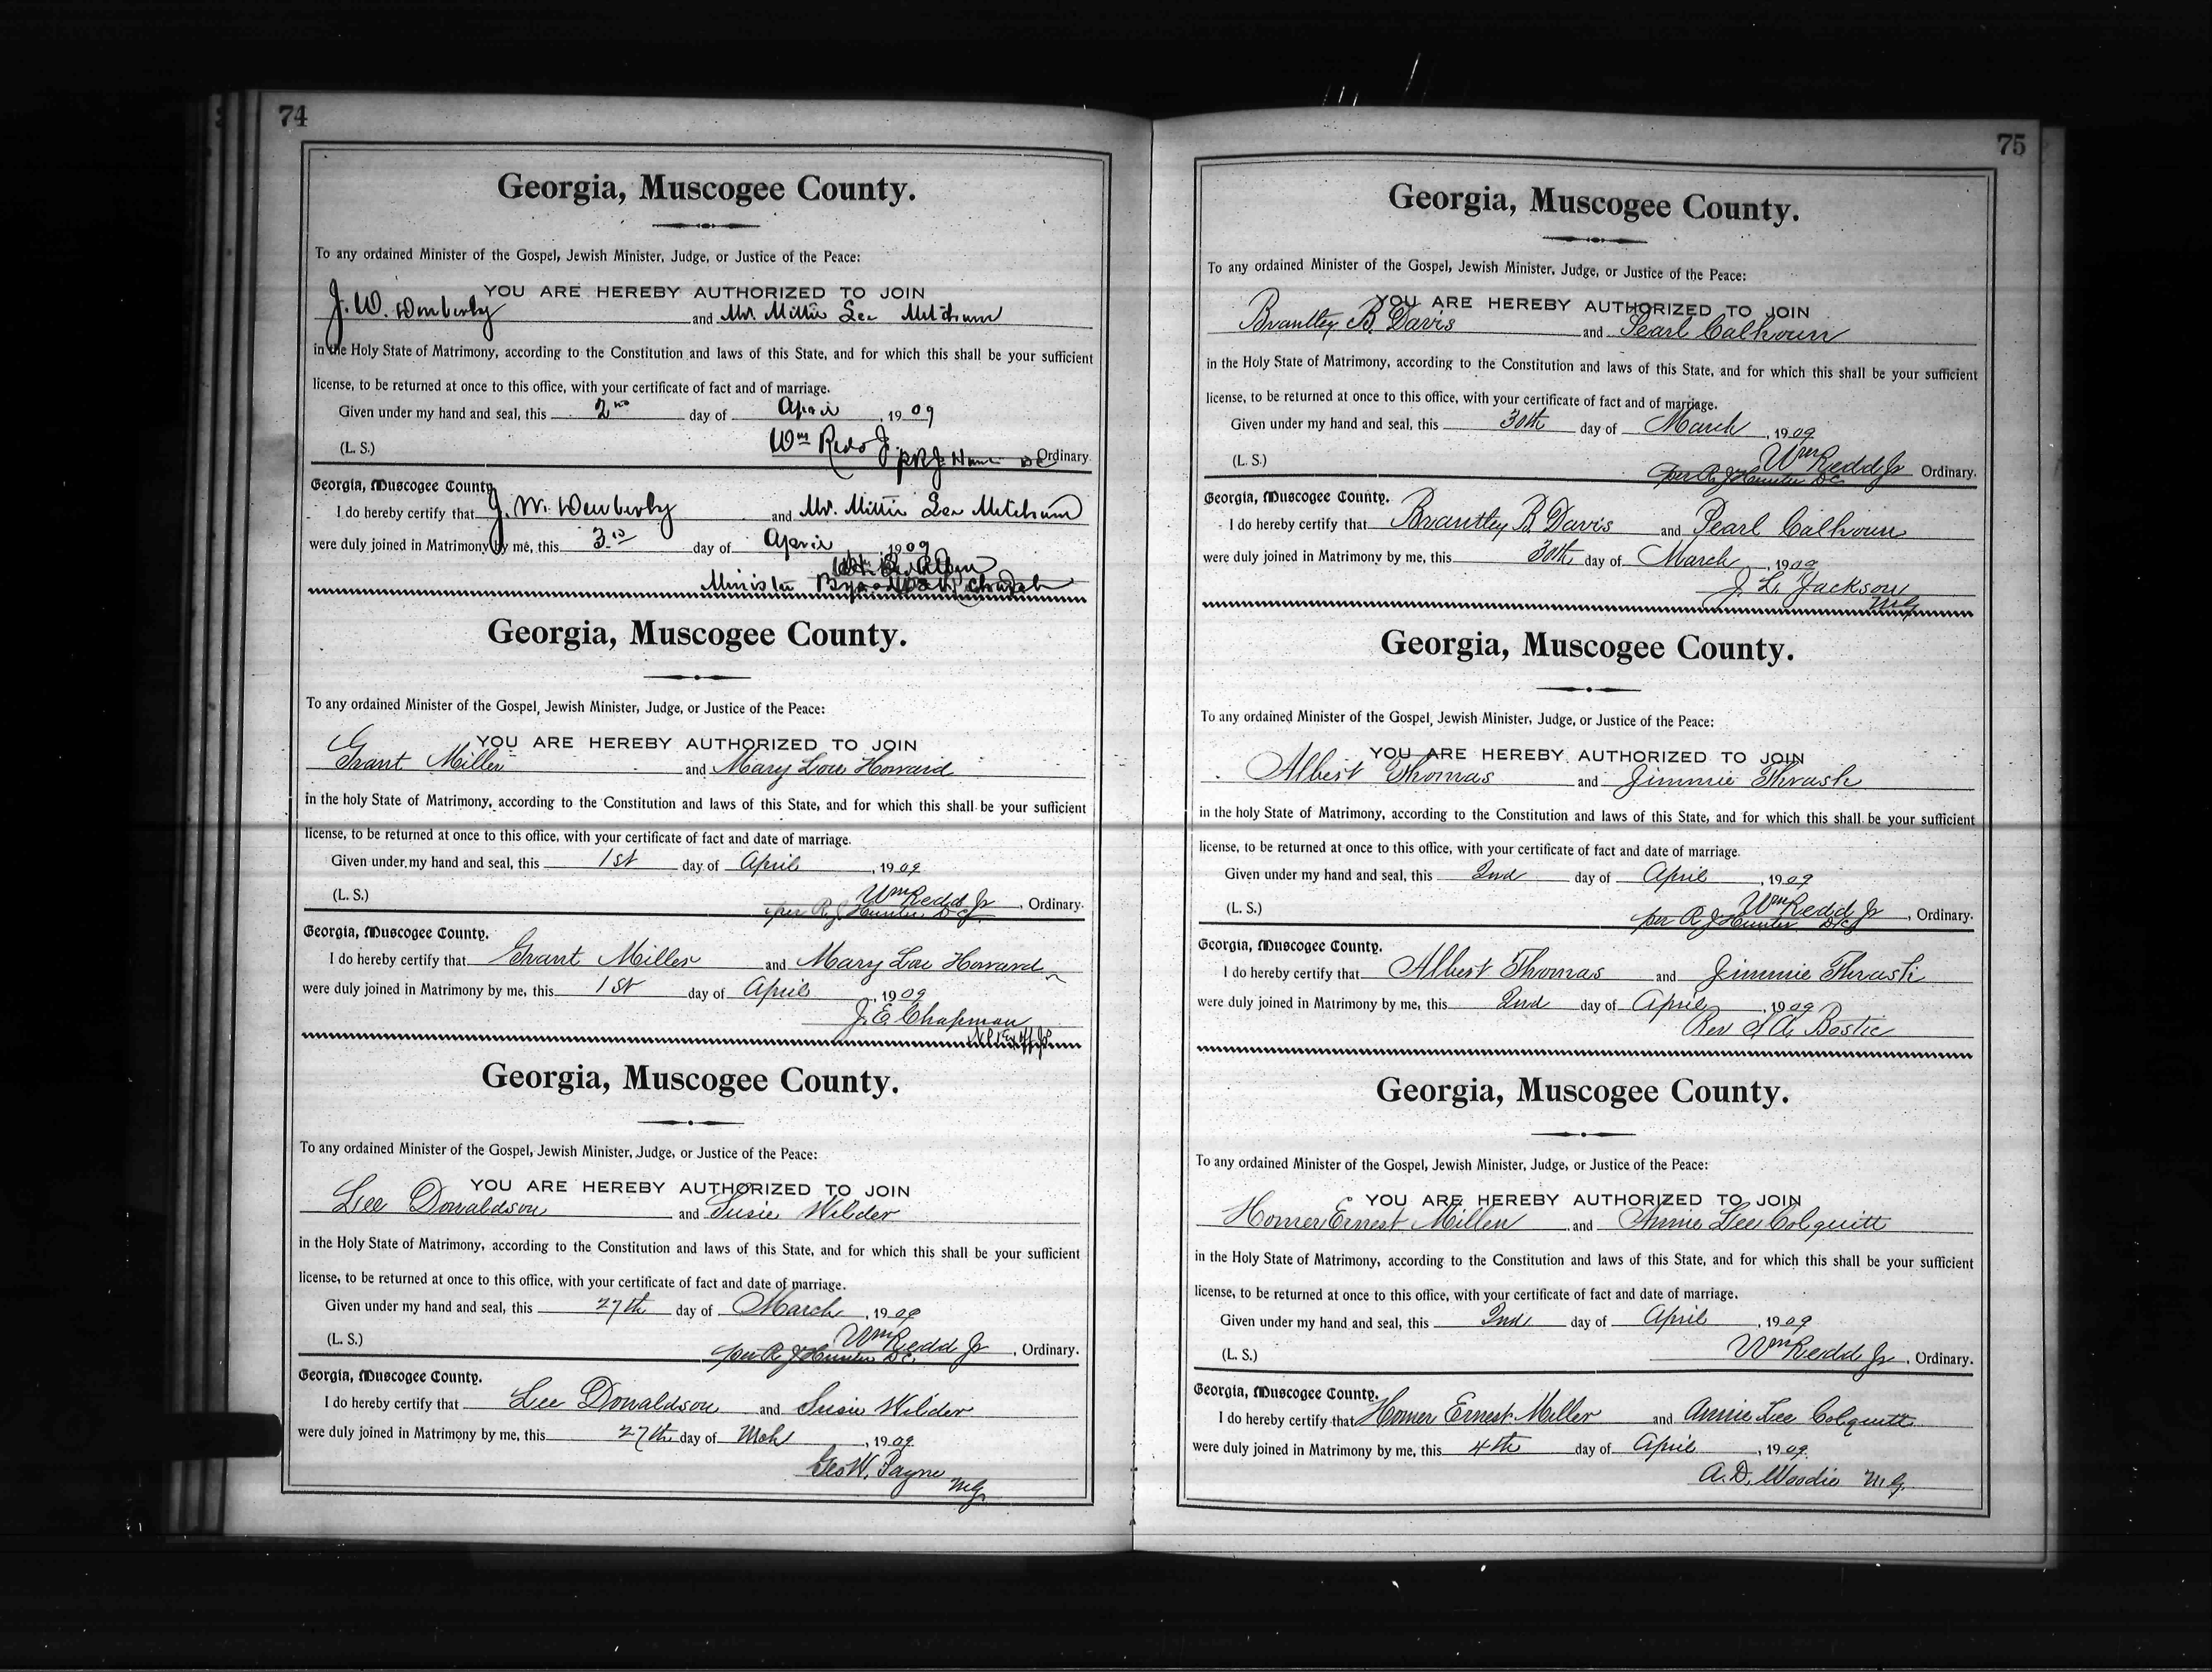 74
Georgia, Muscogee County.
To any ordained Minister of the Gospel, Jewish Minister, Judge, or Justice of the Peace:
YOU ARE HEREBY AUTHORIZED TO JOIN
J. W. and Mrs. Millie Lee Mitchum
in the Holy State of Matrimony, according to the Constitution and laws of this State, and for which this shall be your sufficient
license, to be returned at once to this office, with your certificate of fact and of marriage.
Given under my hand and seal, this 2nd day of April, 1909
(L. S.) Wm Redd Jr. Ordinary.
Georgia, Muscogee County.
I do hereby certify that J. W. and Mrs. Millie Lee Mitchum
were duly joined in Matrimony by me, this 3rd day of April 1909
Minister Church
Georgia, Muscogee County.
To any ordained Minister of the Gospel, Jewish Minister, Judge, or Justice of the Peace:
YOU ARE HEREBY AUTHORIZED TO JOIN
Grant Miller and Mary Lou Howard
in the holy State of Matrimony, according to the Constitution and laws of this State, and for which this shall be your sufficient
license, to be returned at once to this office, with your certificate of fact and date of marriage.
Given under my hand and seal, this 1st day of April, 1909
(L. S.) Wm Redd Jr, Ordinary.
per R J Hunter D.C.
Georgia, Muscogee County.
I do hereby certify that Grant Miller and Mary Lou Howard
were duly joined in Matrimony by me, this 1st day of April, 1909
J. E. Chapman
Georgia, Muscogee County.
To any ordained Minister of the Gospel, Jewish Minister, Judge, or Justice of the Peace:
YOU ARE HEREBY AUTHORIZED TO JOIN
Lee Donaldson and Susie Wilder
in the Holy State of Matrimony, according to the Constitution and laws of this State, and for which this shall be your sufficient
license, to be returned at once to this office, with your certificate of fact and date of marriage.
Given under my hand and seal, this 27th day of March, 1909
(L. S.) Wm Redd Jr, Ordinary.
per R J Hunter D.C.
Georgia, Muscogee County.
I do hereby certify that Lee Donaldson and Susie Wilder
were duly joined in Matrimony by me, this 27th day of Mch, 1909
Geo W. Payne
M.G.
75
Georgia, Muscogee County.
To any ordained Minister of the Gospel, Jewish Minister, Judge, or Justice of the Peace:
YOU ARE HEREBY AUTHORIZED TO JOIN
Brantley B. Davis and Pearl Calhoun
in the Holy State of Matrimony, according to the Constitution and laws of this State, and for which this shall be your sufficient
license, to be returned at once to this office, with your certificate of fact and of marriage.
Given under my hand and seal, this 30th day of March, 1909
(L. S.) Wm Redd Jr Ordinary.
per R J Hunter D.C.
Georgia, Muscogee County.
I do hereby certify that Brantley B. Davis and Pearl Calhoun
were duly joined in Matrimony by me, this 30th day of March, 1909
J. L. Jackson
M.G.
Georgia, Muscogee County.
To any ordained Minister of the Gospel, Jewish Minister, Judge, or Justice of the Peace:
YOU ARE HEREBY AUTHORIZED TO JOIN
Albert Thomas and Jimmie Thrash
in the holy State of Matrimony, according to the Constitution and laws of this State, and for which this shall be your sufficient
license, to be returned at once to this office, with your certificate of fact and date of marriage.
Given under my hand and seal, this 2nd day of April, 1909
(L. S.) Wm Redd Jr, Ordinary.
per R J Hunter D.C.
Georgia, Muscogee County.
I do hereby certify that Albert Thomas and Jimmie Thrash
were duly joined in Matrimony by me, this 2nd day of April, 1909
Rev S. A. Bostic
Georgia, Muscogee County.
To any ordained Minister of the Gospel, Jewish Minister, Judge, or Justice of the Peace:
YOU ARE HEREBY AUTHORIZED TO JOIN
Homer Ernest Miller and Annie Lee Colquitt
in the Holy State of Matrimony, according to the Constitution and laws of this State, and for which this shall be your sufficient
license, to be returned at once to this office, with your certificate of fact and date of marriage.
Given under my hand and seal, this 2nd day of April, 1909
(L. S.) Wm Redd Jr, Ordinary.
Georgia, Muscogee County.
I do hereby certify that Homer Ernest Miller and Annie Lee Colquitt
were duly joined in Matrimony by me, this 4th day of April, 1909
A. D. Woodie M.G.